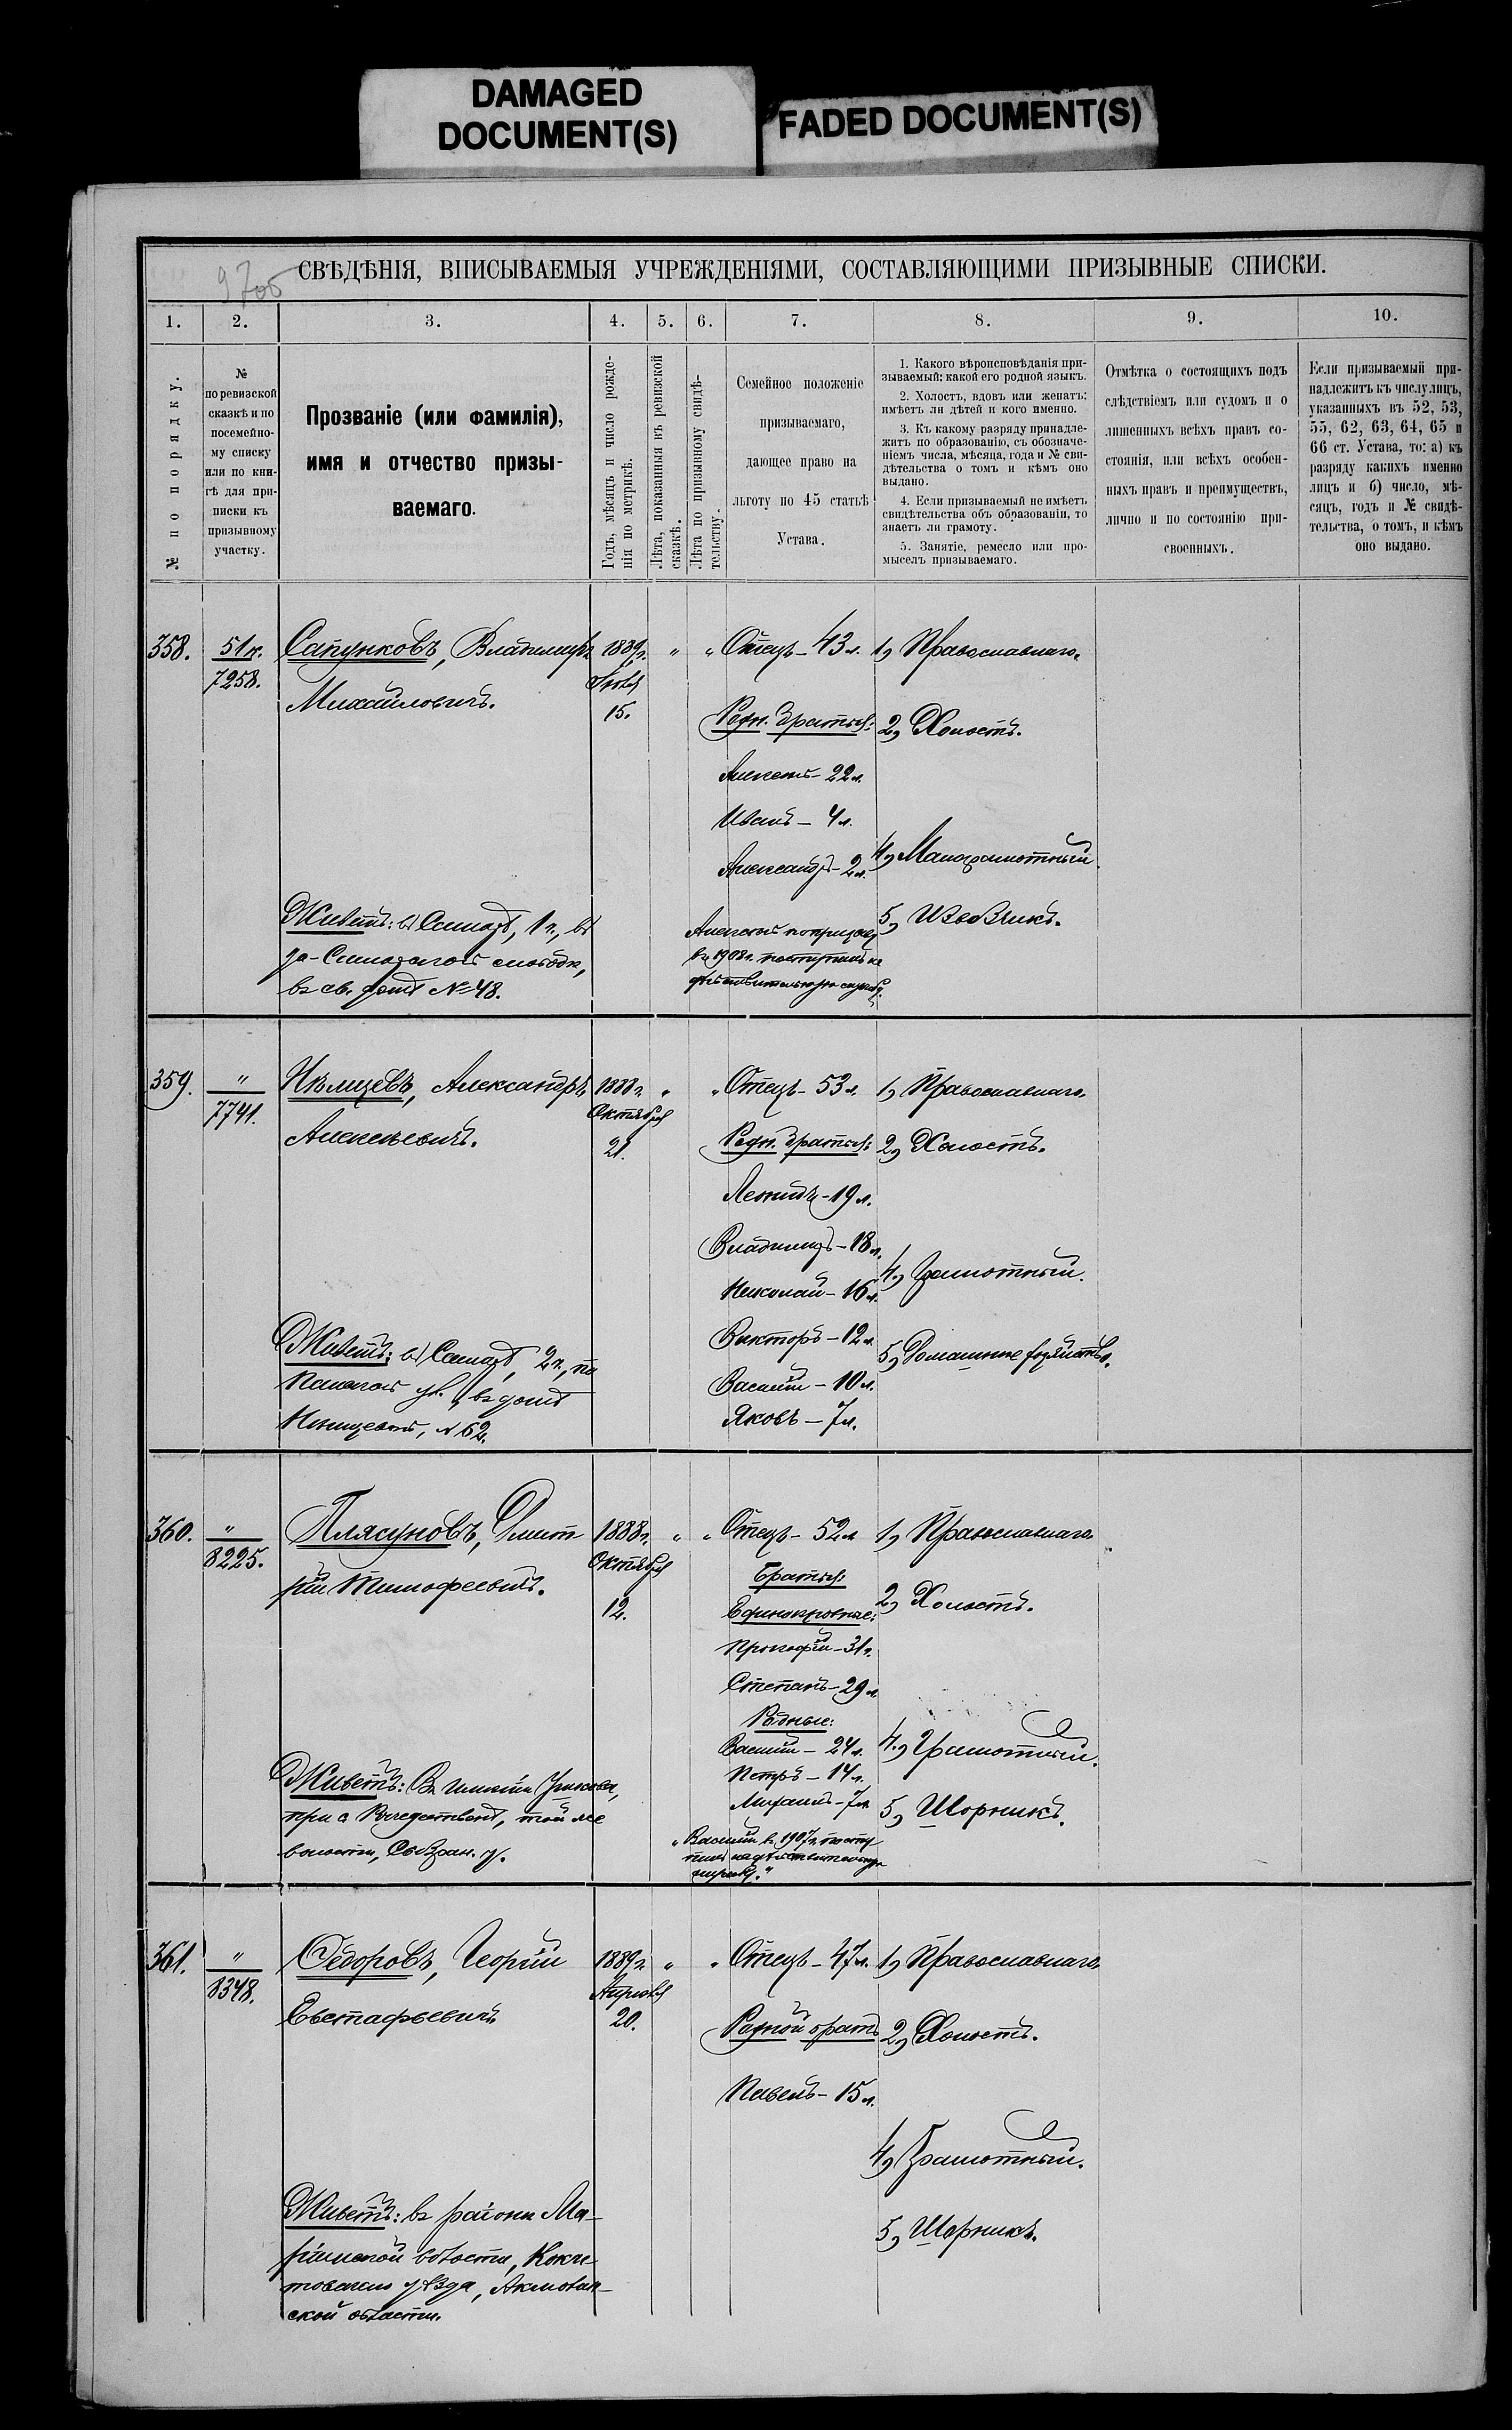 DAMAGED
DOCUMENT(S)
FADED DOCUMENT(S)
97об
СВѢДѢНІЯ, ВПИСЫВАЕМЫЯ УЧРЕЖДЕНІЯМИ, СОСТАВЛЯЮЩИМИ ПРИЗЫВНЫЕ СПИСКИ.
1. 2. 3. 4. 5. 6. 7. 8. 9. 10.
№ по порядку.
№
по ревизской
сказкѣ и по
посемейно-
му списку
или по кни-
гѣ для при-
писки къ
призывному
участку.
Прозваніе (или фамилія),
имя и отчество призы-
ваемаго.
Годъ, мѣсяцъ и число рожде-
нія по метрикѣ.
Лѣта, показанныя въ ревизской
сказкѣ.
Лѣта по призывному свидѣ-
тельству.
Семейное положеніе
призываемаго,
дающее право на
льготу по 45 статьѣ
Устава.
1. Какого вѣроисповѣданія при-
зываемый: какой его родной языкъ.
2. Холостъ, вдовъ или женатъ:
имѣетъ ли дѣтей и кого именно.
3. Къ какому разряду принадле-
житъ по образованію, съ обозначе-
ніемъ числа, мѣсяца, года и № сви-
дѣтельства о томъ и кѣмъ оно
выдано.
4. Если призываемый не имѣетъ
свидѣтельства объ образованіи, то
знаетъ ли грамоту.
5. Занятіе, ремесло или про-
мыселъ призываемаго.
Отмѣтка о состоящихъ подъ
слѣдствіемъ или судомъ и о
лишенныхъ всѣхъ правъ со-
стоянія, или всѣхъ особен-
ныхъ правъ и преимуществъ,
лично и по состоянію при-
своенныхъ.
Если призываемый при-
надлежитъ къ числу лицъ,
указанныхъ въ 52, 53,
55, 62, 63, 64, 65 и
66 ст. Устава, то: а) къ
разряду какихъ именно
лицъ и б) число, мѣ-
сяцъ, годъ и № свидѣ-
тельства, о томъ, и кѣмъ
оно выдано.
358.
51
7258.
Сапунковъ, Владиміръ
Михайловичъ.
Живетъ: въ Самарѣ, 1 ч., въ
за-Самарской слободк,
въ св. домѣ № 48.
1889 г.
15.
" "
Отецъ - 43 л.
Родн. братья:
Алексѣй - 22 л.
Иванъ - 4 л.
Александръ - 2 л.
Алексѣй по призыву
въ 1908 г. поступилъ на
дѣйствительную службу.
1, Православнаго.
2, Холостъ.
4, Малограмотный.
5, Извозчикъ.
359.
"
7741.
Александръ
Алексѣевичъ.
Живетъ: въ Самарѣ, 2 ч., по
ул. въ домѣ
№ 62.
1888 г.
Октября
21.
" "
Отецъ - 53 л.
Родн. братья:
Леонидъ - 19 л.
Владиміръ - 18 л.
Николай - 16 л.
Викторъ - 12 л.
Василій - 10 л.
Яковъ - 7 л.
1, Православнаго.
2, Холостъ.
4, Грамотный.
5, Домашнее хозяйство.
360.
"
8225.
Плясуновъ, Дмит
рій Тимофеевичъ.
Живетъ: Въ имѣніи
при с. Рождествено, той же
волости, Сызран. у.
1888 г.
Октября
12.
" "
Отецъ - 52 л.
Братья:
Единокровные:
Прокофій - 31 г.
Степанъ - 29 л.
Родные:
Василій - 24 л.
Петръ - 14 л.
Михаилъ - 7 л.
"Василій въ 1907 г. посту
пилъ на дѣйствительную
службу."
1, Православнаго.
2, Холостъ.
4, Грамотный.
5, Шорникъ.
361.
"
8348.
Ѳедоровъ, Георгій
Евстафьевичъ.
Живетъ: въ районѣ Ма-
ріинской волости, Кокче-
товскаго уѣзда, Акмолин-
ской области.
1889 г.
Апрѣля
20.
" "
Отецъ - 47 л.
Родной братъ
Павелъ - 15 л.
1, Православнаго.
2, Холостъ.
4, Грамотный.
5, Шорникъ.